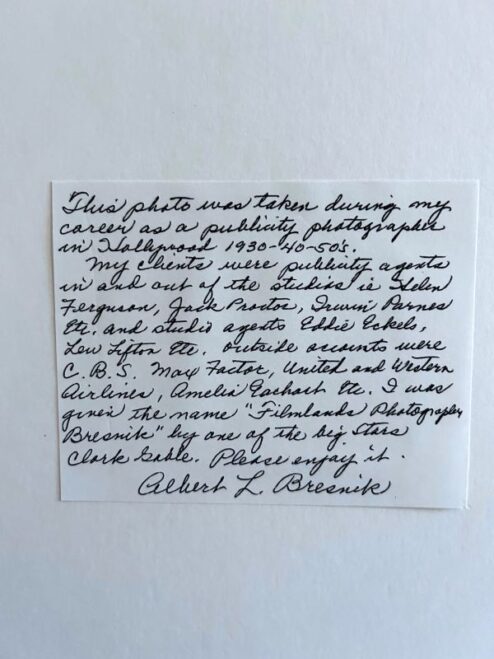 This photo was taken during my
career as a publicity photographer
in Hollywood 1930-40-50's.
My clients were publicity agents
in and out of the studios ie Helen
Ferguson, Jack Proctor, Irwin Parnes
Etc. and studio agents Eddie Eckels,
Lew Lifton Etc. outside accounts were
C.B.S. Max Factor, United and Western
Airlines, Amelia Earhart Etc. I was
given the name "Filmlands Photographer
Bresnik" by one of the big Stars
Clark Gable. Please enjoy it.
Albert L. Bresnik